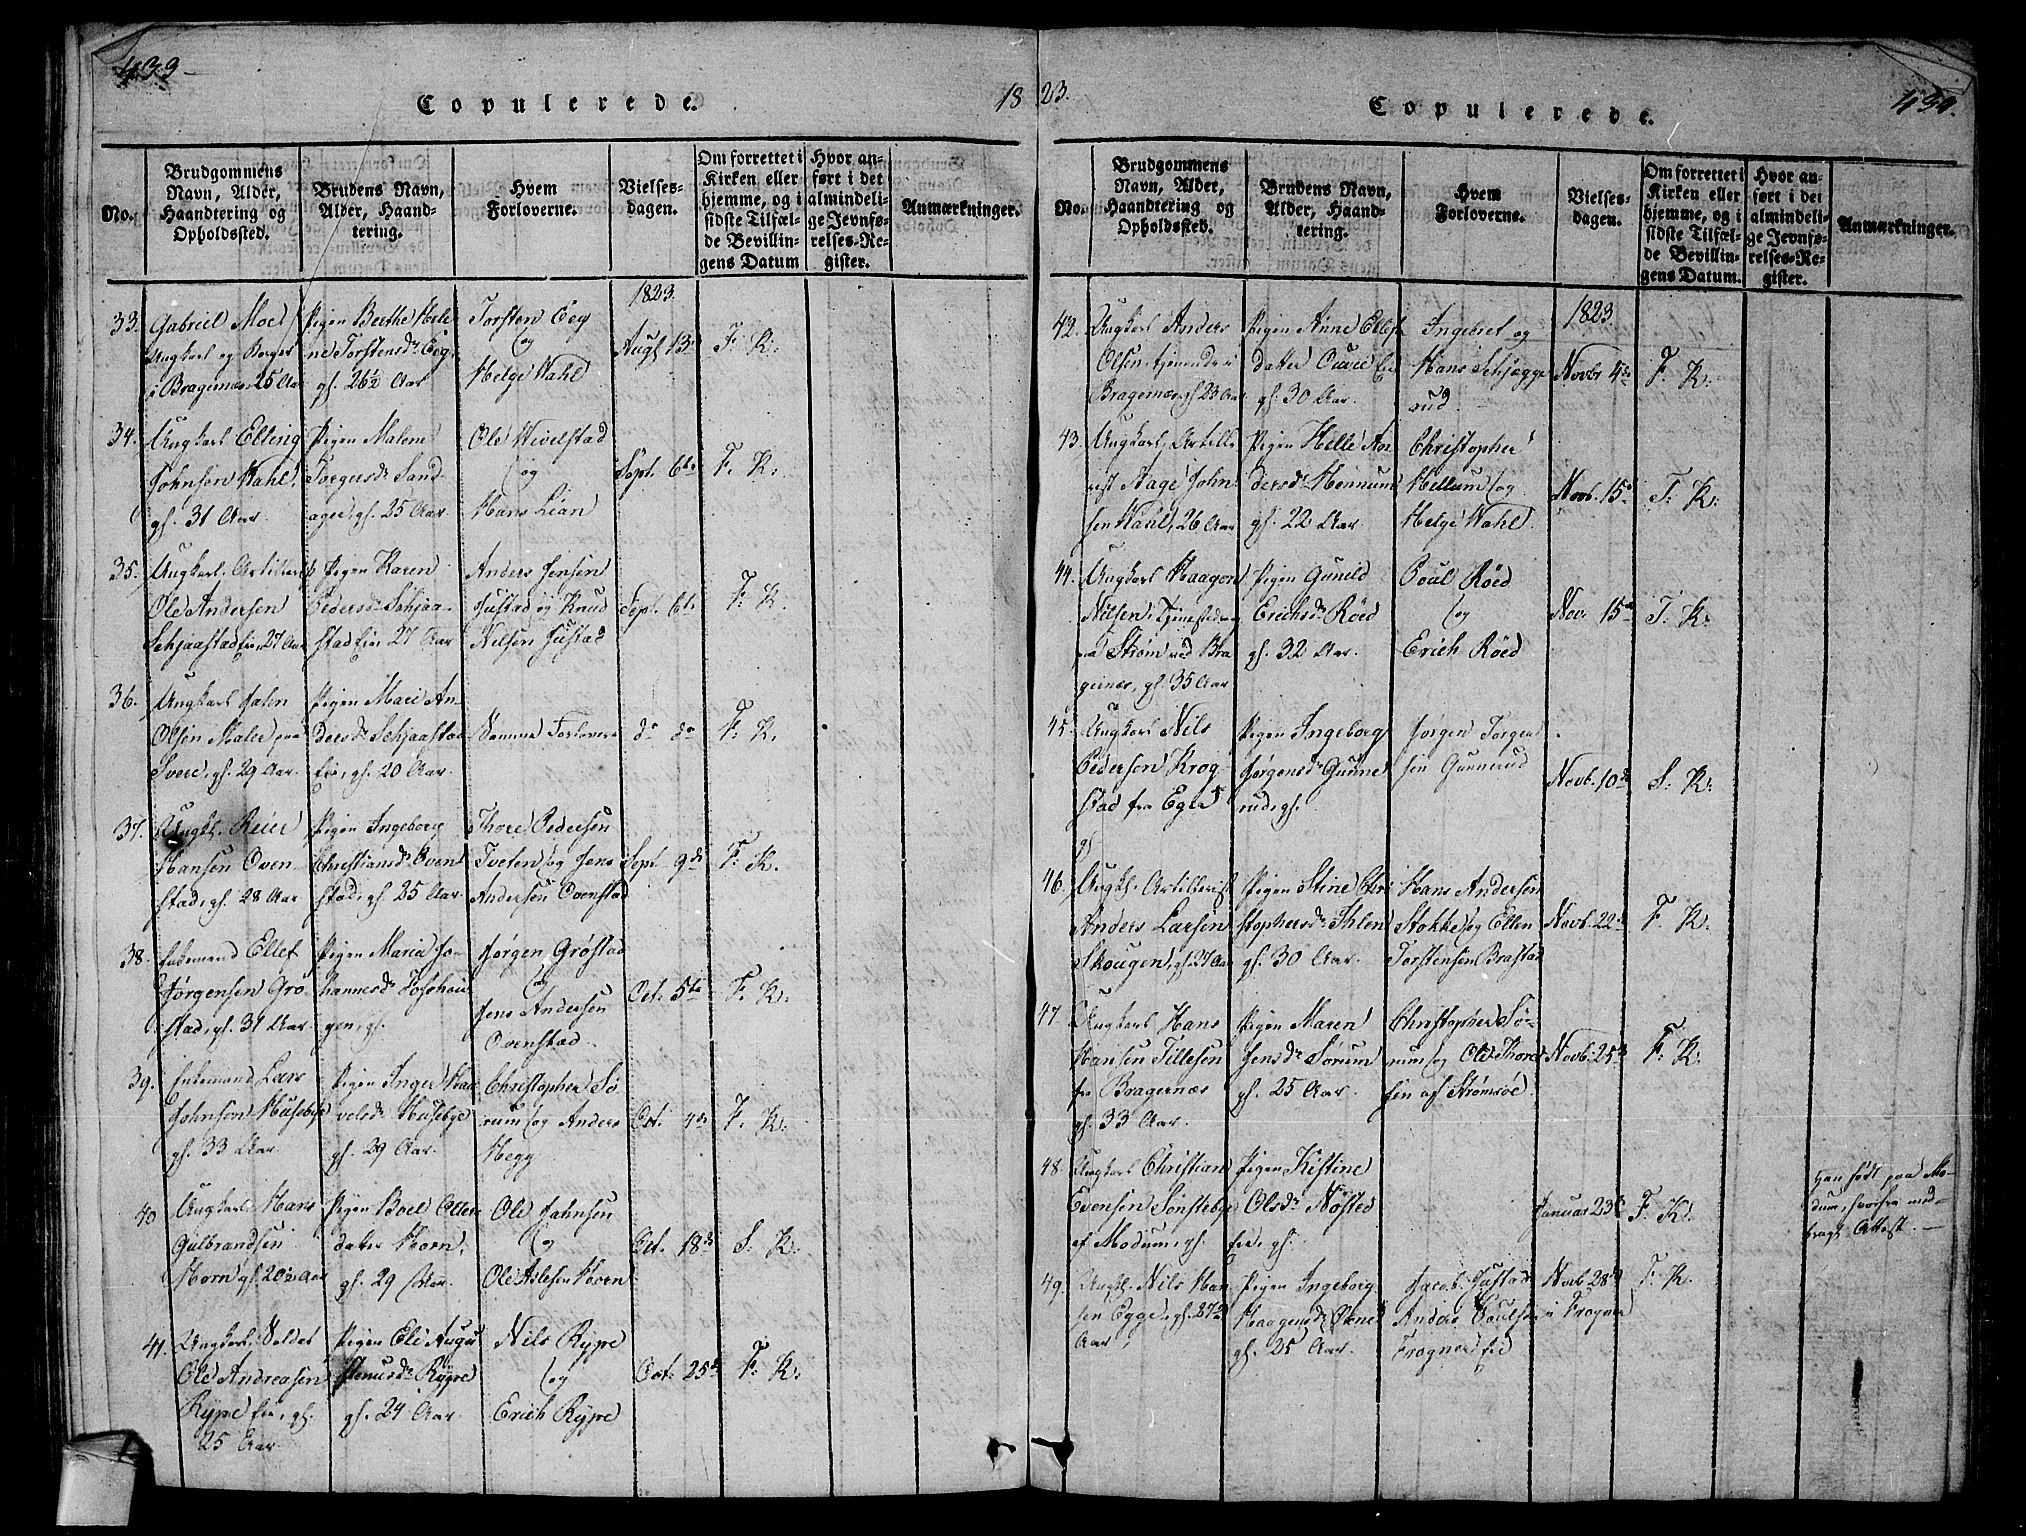 433
Copulerede.
18
No.
Brudgommens
Navn, Alder,
Haandtering og
Opholdssted.
Brudens Navn,
Alder, Haand-
tering.
Hvem
Forloverne.
Vielses-
dagen.
Om forrettet i
Kirken eller
hjemme, og i
sidste Tilfæl-
de Bevillin-
gens Datum
Hvor an-
ført i det
almindeli-
ge Jevnfø-
relses-Re-
gister.
Anmærkninger.
1823.
33.
Gabriel Moe
Ungkarl og Borger
i Bragernæs 25 Aar
Pigen Berthe Hele-
ne Torstensdr Eeg
gl. 26½ Aar
Torsten Eeg
og
Helge Wahl
Augl 13
F. K.
34.
Ungkarl Elling
Johnsen Wahl,
gl. 31 Aar.
Pigen Malene
Torgersdr Sand-
ager, gl. 25 Aar
Ole Wivelstad
og
Hans Lian
Sept. 6te
F. K.
35.
Ungkarl. Artillerist
Ole Andersen
Schjaastad eie, 27 Aar
Pigen Karen
Pedersdr Schjaa-
stad eie 27 Aar
Anders Jensen
Justad og Knud
Nilsen Justad
Sept. 6te
F. K.
36.
Ungkarl
Olsen Maler paa
Svere, gl. 29 Aar.
Pigen Mari An-
dersdr Schjaastad
eie, gl. 20 Aar.
Samme Forlovere
do do
F. K.
37.
Ungkl. Reier
Hansen Oven-
stad, gl. 28 Aar
Pigen Ingeborg
Christiansdr Oven-
stad, gl. 25 Aar.
Thore Pedersen
Tveten og Jens
Andersen Ovenstad
Sept. 9de
F. K.
38.
Enkemand Ellef
Jørgensen Grø-
stad, gl. 31 Aar.
Pigen Maria Jo-
hannesdr
gen, gl.
Jørgen Grøstad
og
Jens Andersen
Ovenstad.
Oct. 5te
F. K.
39.
Enkemand Lars
Johnsen Huseby
gl. 33 Aar
Pigen Inger Paa-
velsdr Husebye
gl. 29 Aar.
Christopher Sø-
rum og Anders
Hegg
Oct. 4de
F. K.
40
Ungkarl Hans
Gulbrandsen
Horn gl. 20½ Aar
Pigen Boel Ellens-
datter Horn,
gl. 29 Aar.
Ole Johnsen
og
Ole Aslesen Horn
Oct. 18de
S. K.
41.
Ungkarl, Soldat
Ole Andreasen
Rype eie, gl.
25 Aar.
Pigen Eli Augu-
stenusdr Rype
gl. 24 Aar.
Nils Rype
og
Erich Rype
Oct. 25de
F. K.
23.
Copulerede.
434.
No.
Brudgommens
Navn, Alder,
Haandtering og
Opholdssted.
Brudens Navn,
Alder, Haand-
tering.
Hvem
Forloverne.
Vielses-
dagen.
Om forrettet i
Kirken eller
hjemme, og i
sidste Tilfæl-
de Bevillin-
gens Datum.
Hvor an-
ført i det
almindeli-
ge Jevnfø-
relses-Re-
gister.
Anmærkninger.
1823
42.
Ungkarl Anders
Olsen tjenende i
Bragernæs gl 23 Aar
Pigen Anne Ellefs-
datter
gl. 30 Aar.
Ingebret og
Hans Schjøgge-
rud
Novbr 4de
F. K.
43.
Ungkarl, Artille-
rist Aage John-
sen Wahl, 26 Aar
Pigen Helle An-
dersdr Hønnum
gl. 22 Aar.
Christopher
Hellum og
Helge Wahl.
Novb. 15de
F. K.
44.
Ungkarl Haagen
Nilsen,
paa Strøm ved Bra-
gernæs, gl. 35 Aar
Pigen Guneld
Erichsdr Røed
gl. 32 Aar.
Poul Røed
og
Erich Røed
Nov. 15de
F. K.
45.
Ungkarl Nils
Pedersen Krog-
stad fra Eger
gl
Pigen Ingeborg
Jørgensdr Gunne-
rud, gl.
Jørgen Torger-
sen Gunnerud
Novb. 10de
S. K.
46.
Ungkl. Artillerist
Anders Larsen
Skougen, gl. 27 Aar
Pigen Stine Chri-
stophersdr Ihlen
gl. 30 Aar.
Hans Andersen
Stokke og Ellen
Torstensen Brastad
Novb. 22de
F. K.
47
Ungkarl Hans
Hansen Tillesen
fra Bragernæs
gl. 33 Aar.
Pigen Maren
Jensdr Sørum
gl. 25 Aar.
Christopher Sø-
rum og Ole Thore-
sen af Strømsøe.
Novb. 25de
F. K.
48.
Ungkarl Christian
Evensen Sønsteby
af Modum, gl.
Pigen Kistine
Olsdr Nøsted
eie, gl.
Januar 23de
F. K.
Han født paa Mo-
dum, hvorfra med-
bragt Attest.
49.
Ungkl. Nils Han-
sen Egge, gl. 27½
Aar,
Pigen Ingeborg
Haagensdr
gl. 25 Aar.
Jacob Justad
Anders Poulsen
Frogner eie
Novb 28de
i Frogner
F. K.